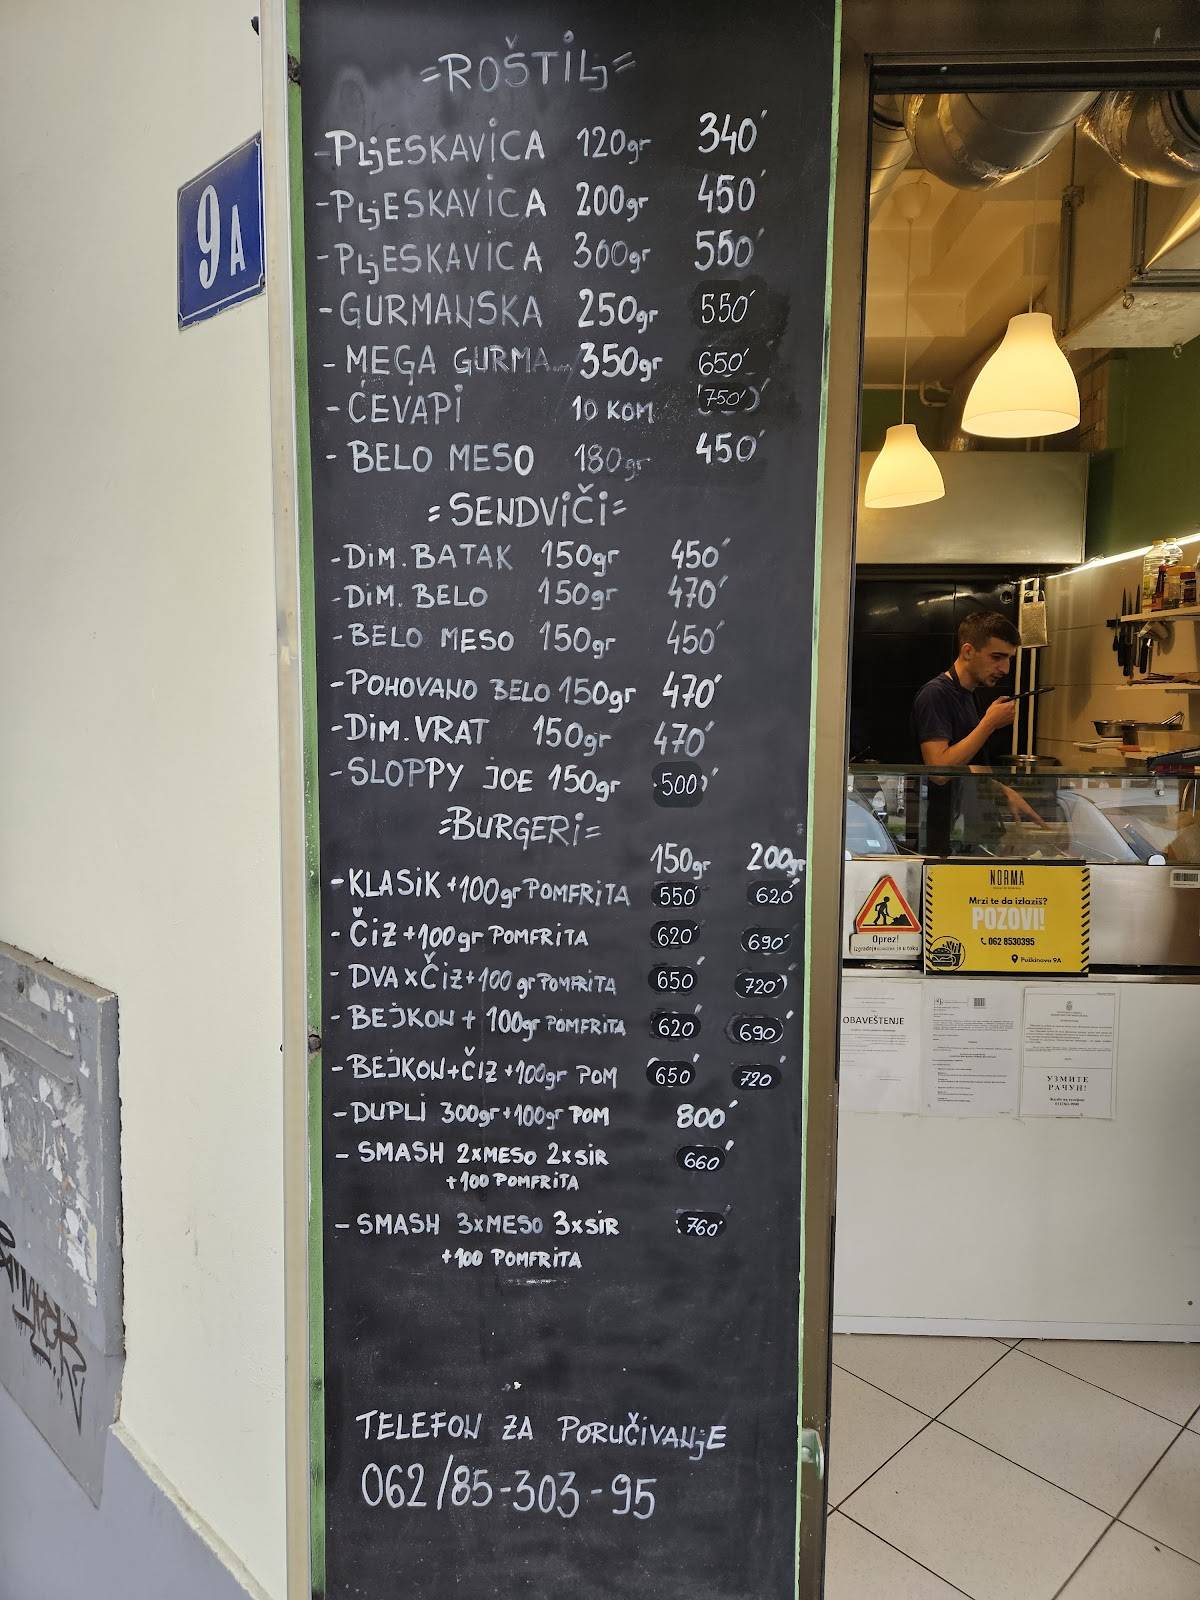 =ROŠTILj=
-PLjESKAVICA 120gr 340'
-PLjESKAVICA 200gr 450'
-PLjESKAVICA 300gr 550'
-GURMANSKA 250gr 550'
-MEGA GURMA... 350gr 650'
-ĆEVAPI 10 KOM 750'
-BELO MESO 180gr 450'
=SENDVIČI=
-DIM. BATAK 150gr 450'
-DIM. BELO 150gr 470'
-BELO MESO 150gr 450'
-POHOVANO BELO 150gr 470'
-DIM. VRAT 150gr 470'
-SLOPPY JOE 150gr 500'
=BURGERI=
150gr 200gr
-KLASIK +100gr POMFRITA 550' 620'
-ČIZ+100gr POMFRITA 620' 690'
-DVAxČIZ+100gr POMFRITA 650' 720'
-BEJKON + 100gr POMFRITA 620' 690'
-BEJKON+ČIZ+100gr POM 650' 720'
-DUPLI 300gr+100gr POM 800'
-SMASH 2xMESO 2xSIR 660'
+100 POMFRITA
-SMASH 3xMESO 3xSIR 760'
+100 POMFRITA
TELEFON ZA PORUČIVANjE
062/85-303-95
9A
NORMA
Mrzi te da izlaziš?
POZOVI!
062 8530395
Puškinova 9A
Oprez!
Izgradnja je u toku
OBAVEŠTENJE
УЗМИТЕ
РАЧУН!